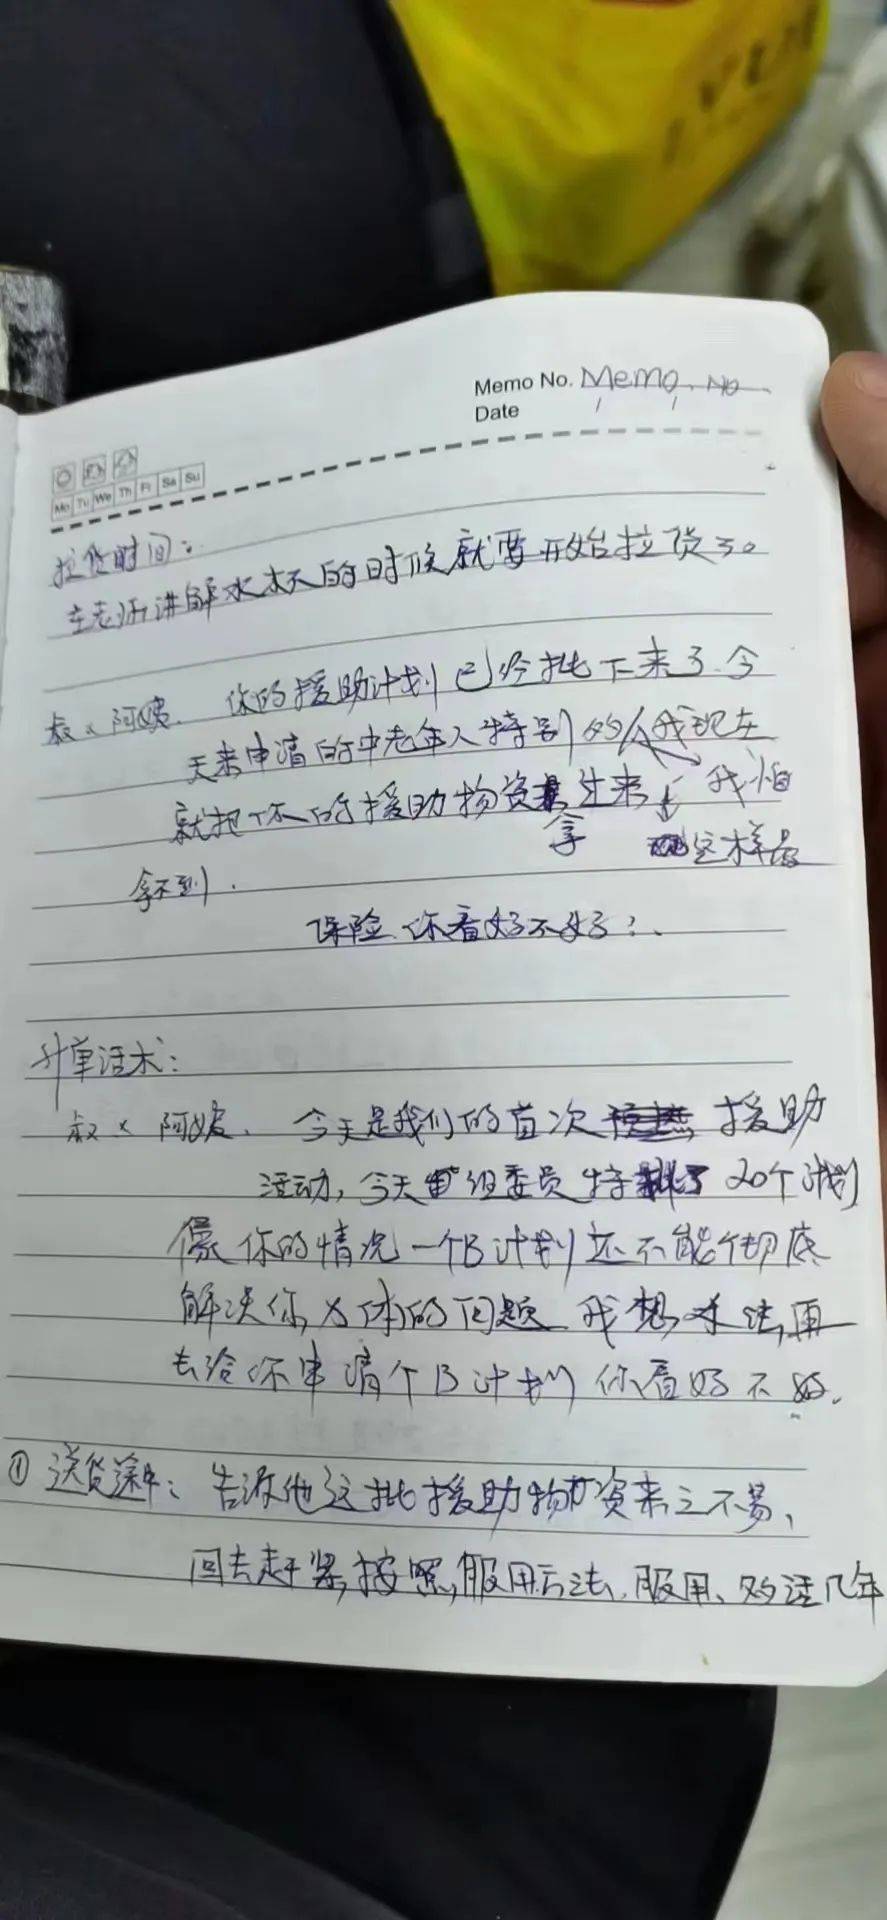 Memo No. Memo. No.
Date
Mo Tu We Th Fr Sa Su
拉货时间:
在老师讲解水杯的时候就要开始拉货了。
叔 x 阿姨. 你的援助计划已经批下来了.今
天来申请的中老年人特别的人我现在
就把你的援助物资 过来 我怕
拿 这样最
拿不到.
保险.你看好不好?.
升单话术:
叔 x 阿姨. 今天是我们的首次 援助
活动,今天 组委员特 20个计划
像你的情况一个B计划还不能彻底
解决你身体的问题 我想办法,再
去给你申请个B计划 你看好不好.
① 送货途中: 告诉他这批援助物资来之不易,
回去赶紧,按照,服用方法.服用、多活几年